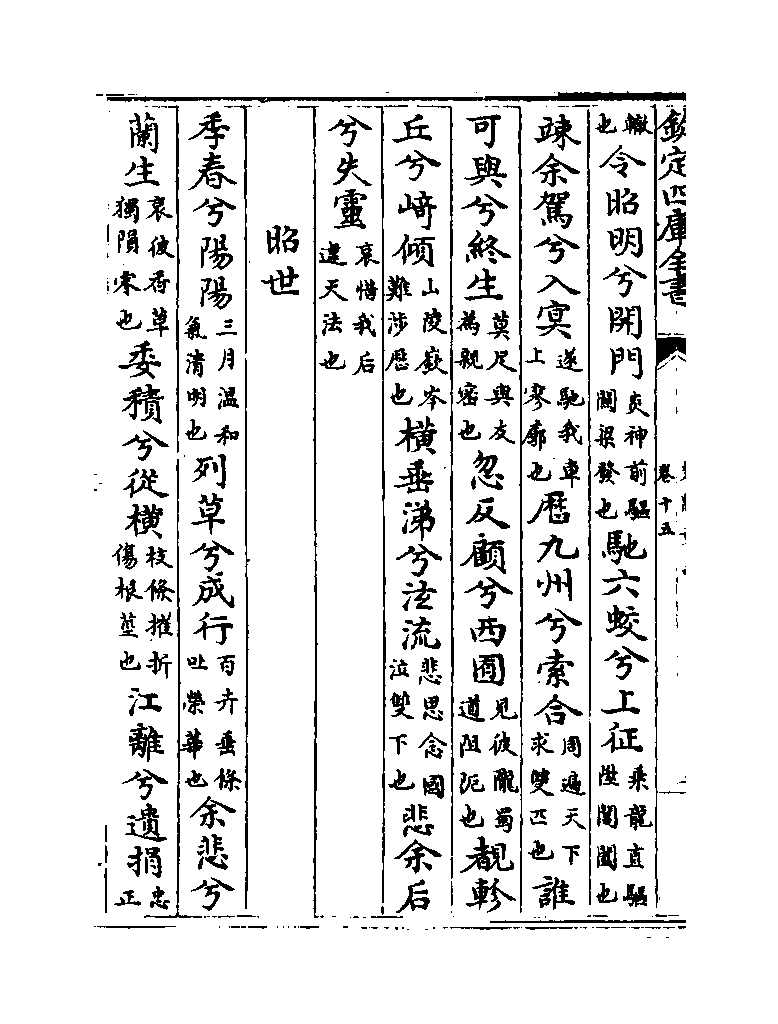 欽定四庫全書
卷十五
轍也令昭明兮開門炎神前驅關梁發也馳六蛟兮上征乘龍直驅陞閶闔也
竦余駕兮入冥遂馳我車上寥廓也歴九州兮索合周遍天下求雙匹也誰
可與兮終生莫足與友為親密也忽反顧兮西囿見彼隴蜀道阻阨也覩軫
丘兮崎傾山陵嶔岑難涉歴也橫垂涕兮泫流悲思念國泣雙下也悲余后
兮失靈哀惜我后違天法也
昭世
季春兮陽陽三月温和氣清明也列草兮成行百卉垂條吐榮華也余悲兮
蘭生哀彼香草獨隕零也委積兮從橫枝條摧折傷根莖也江離兮遺捐忠正